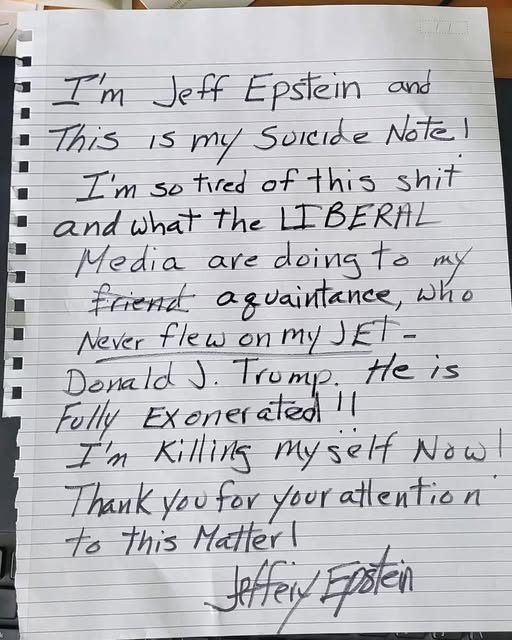 I'm Jeff Epstein and
This is my Suicide Note!
I'm so tired of this shit
and what the LIBERAL
Media are doing to my
friend aquaintance, who
Never flew on my JET -
Donald J. Trump. He is
Fully Exonerated!!
I'm Killing myself Now!
Thank you for your attention
to this Matter!
Jeffery Epstein